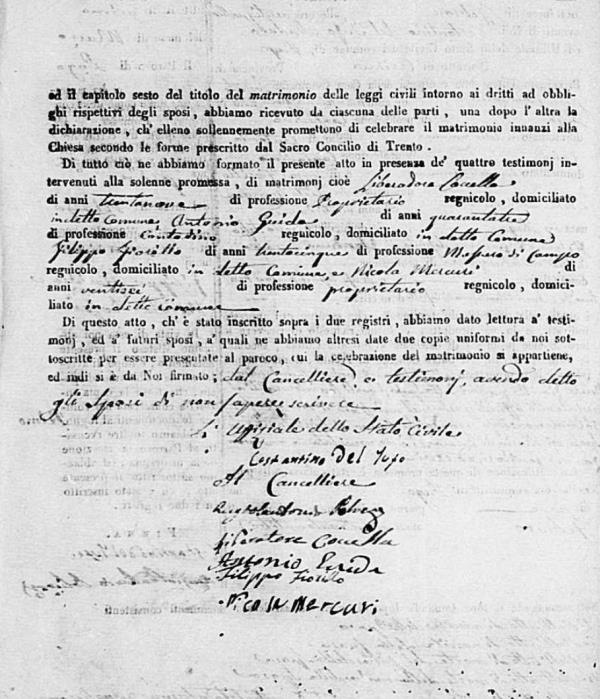 ed il capitolo sesto del titolo del matrimonio delle leggi civili intorno ai dritti ad obbli-
ghi rispettivi degli sposi, abbiamo ricevuto da ciascuna delle parti, una dopo l'altra la
dichiarazione, ch' elleno sollennemente promettono di celebrare il matrimonio innanzi alla
Chiesa secondo le forme prescritto dal Sacro Concilio di Trento.
Di tutto ciò ne abbiamo formato il presente atto in presenza de' quattro testimonj in-
tervenuti alla solenne promessa, di matrimonj cioè Liberadore Covella
di anni trentanove di professione Proprietario regnicolo, domiciliato
in detto Comune, Antonio Guida di anni quarantatre
di professione Contadino reguicolo, domiciliato in detto Comune
Filippo Fiorillo di anni trentacinque di professione Messero di Campo
regnicolo, domiciliato in detto Comune, e Nicola Mercuri di
anni ventisei di professione proprietario regnicolo, domici-
liato in detto Comune
Di questo atto, ch' è stato inscritto sopra i due registri, abbiamo dato lettura a' testi-
monj, ed a' futuri sposi, a' quali ne abbiamo altresì date due copie uniformi da noi sot-
toscritte per essere presentate al paroco, cui la celebrazione del matrimonio si appartiene,
ed indi si è da Noi firmato; dal Cancelliere, e testimonj, avendo detto
gli Sposi di non sapere scrivere
L' Uffiziale dello Stato Civile
Costantino del
Il Cancelliere
Liberatore Covella
Antonio Guida
Filippo Fiorillo
Nicola Mercuri